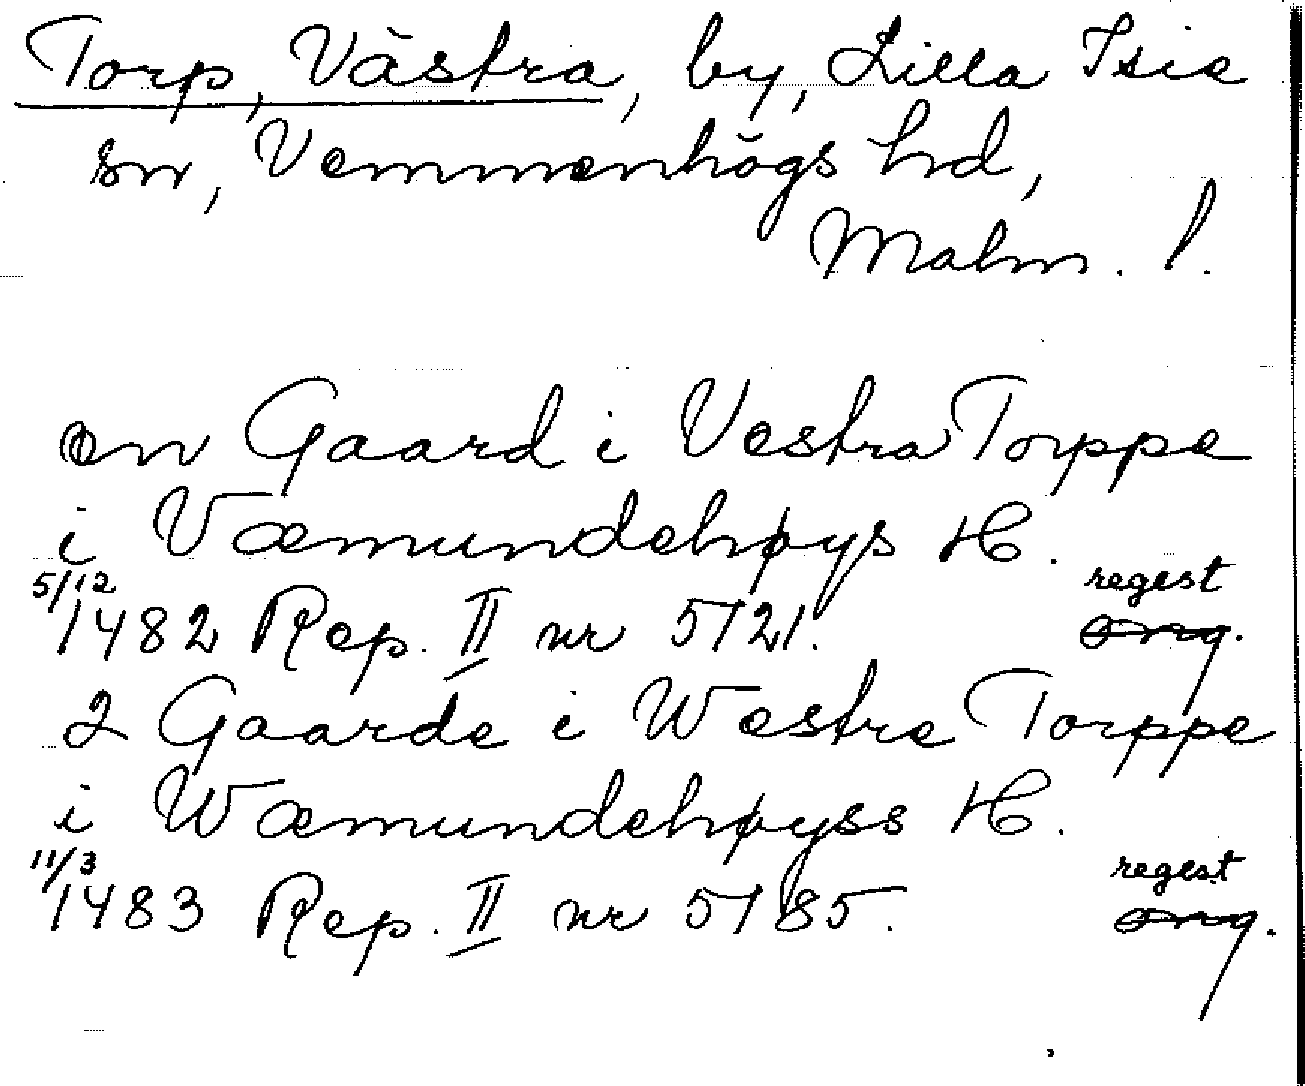 Torp, Västra, by, Lilla Isie
sn, Vemmenhögs hd,
Malm. l.
en Gaard i Vestra Torppe
i Væmundehøys H.
5/12
1482 Rep. II nr 5121. regest
orig.
2 Gaarde i Westre Torppe
i Wæmundehøyss H.
11/3
1483 Rep. II nr 5185. regest
orig.